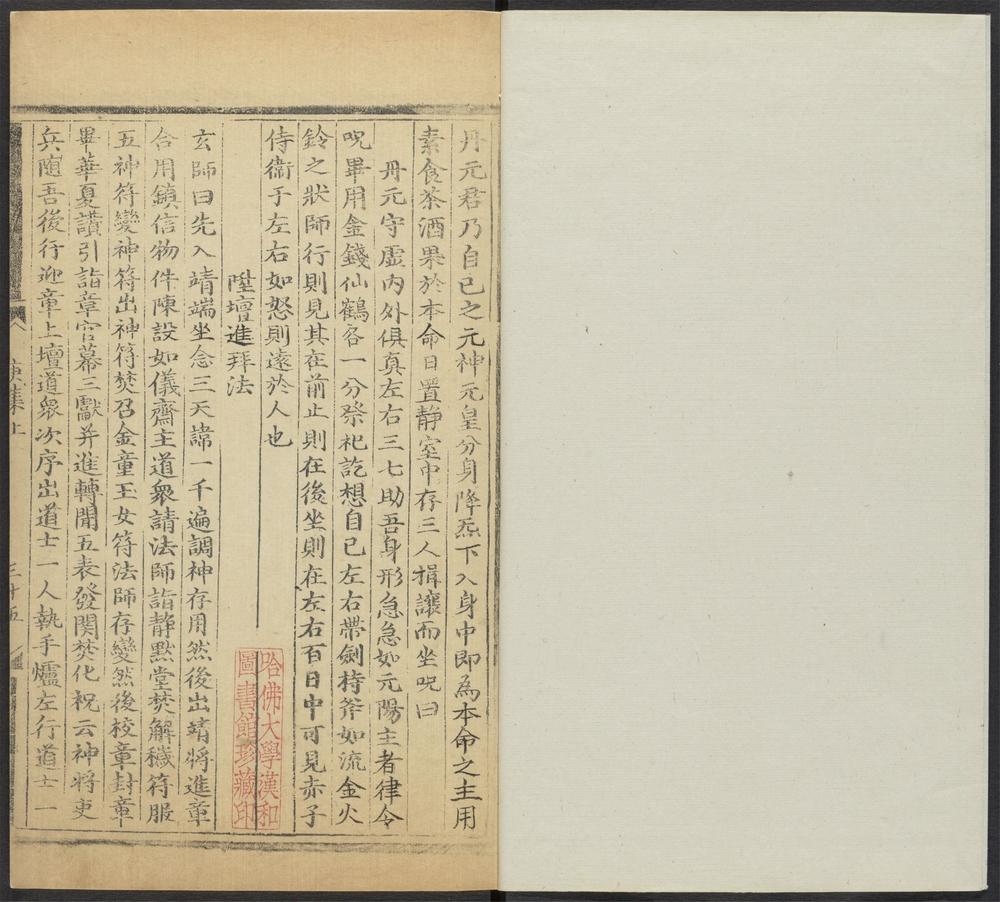 丹元君乃自己之元神元皇分身降炁下入身中即為本命之主用
素食茶酒果於本命日置静室中存三人揖讓而坐呪曰
丹元守虛内外俱真左右三七助吾身形急急如元陽主者律令
呪畢用金錢仙鶴各一分祭祀訖想自己左右帶劍持斧如流金火
鈴之狀師行則見其在前止則在後坐則在左右百日中可見赤子
侍衛于左右如怒則遠於人也
陞壇進拜法
玄師曰先入靖端坐念三天諱一千遍調神存用然後出靖將進章
合用鎮信物件陳設如儀齋主道衆請法師詣静默堂焚解穢符服
五神符變神符出神符焚召金童玉女符法師存變然後校章封章
畢華夏讚引詣章官幕三獻并進轉聞五表發関焚化祝云神將吏
兵随吾後行迎章上壇道衆次序出道士一人執手爐左行道士一
集上
三十五
哈佛大學漢和
圖書館珍藏印